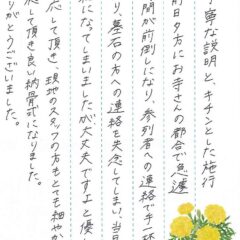 丁寧な説明と、キチンとした施行
前日夕方にお寺さんの都合で急遽
間が前倒しになり、参列者への連絡で手一杯
り、墓石の方への連絡を失念してしまい、当日
になってしまいましたが大丈夫ですよと優し
応して頂き、現地のスタッフの方もとても細やか
して頂き良い納骨式になりました。
りがとうございました。